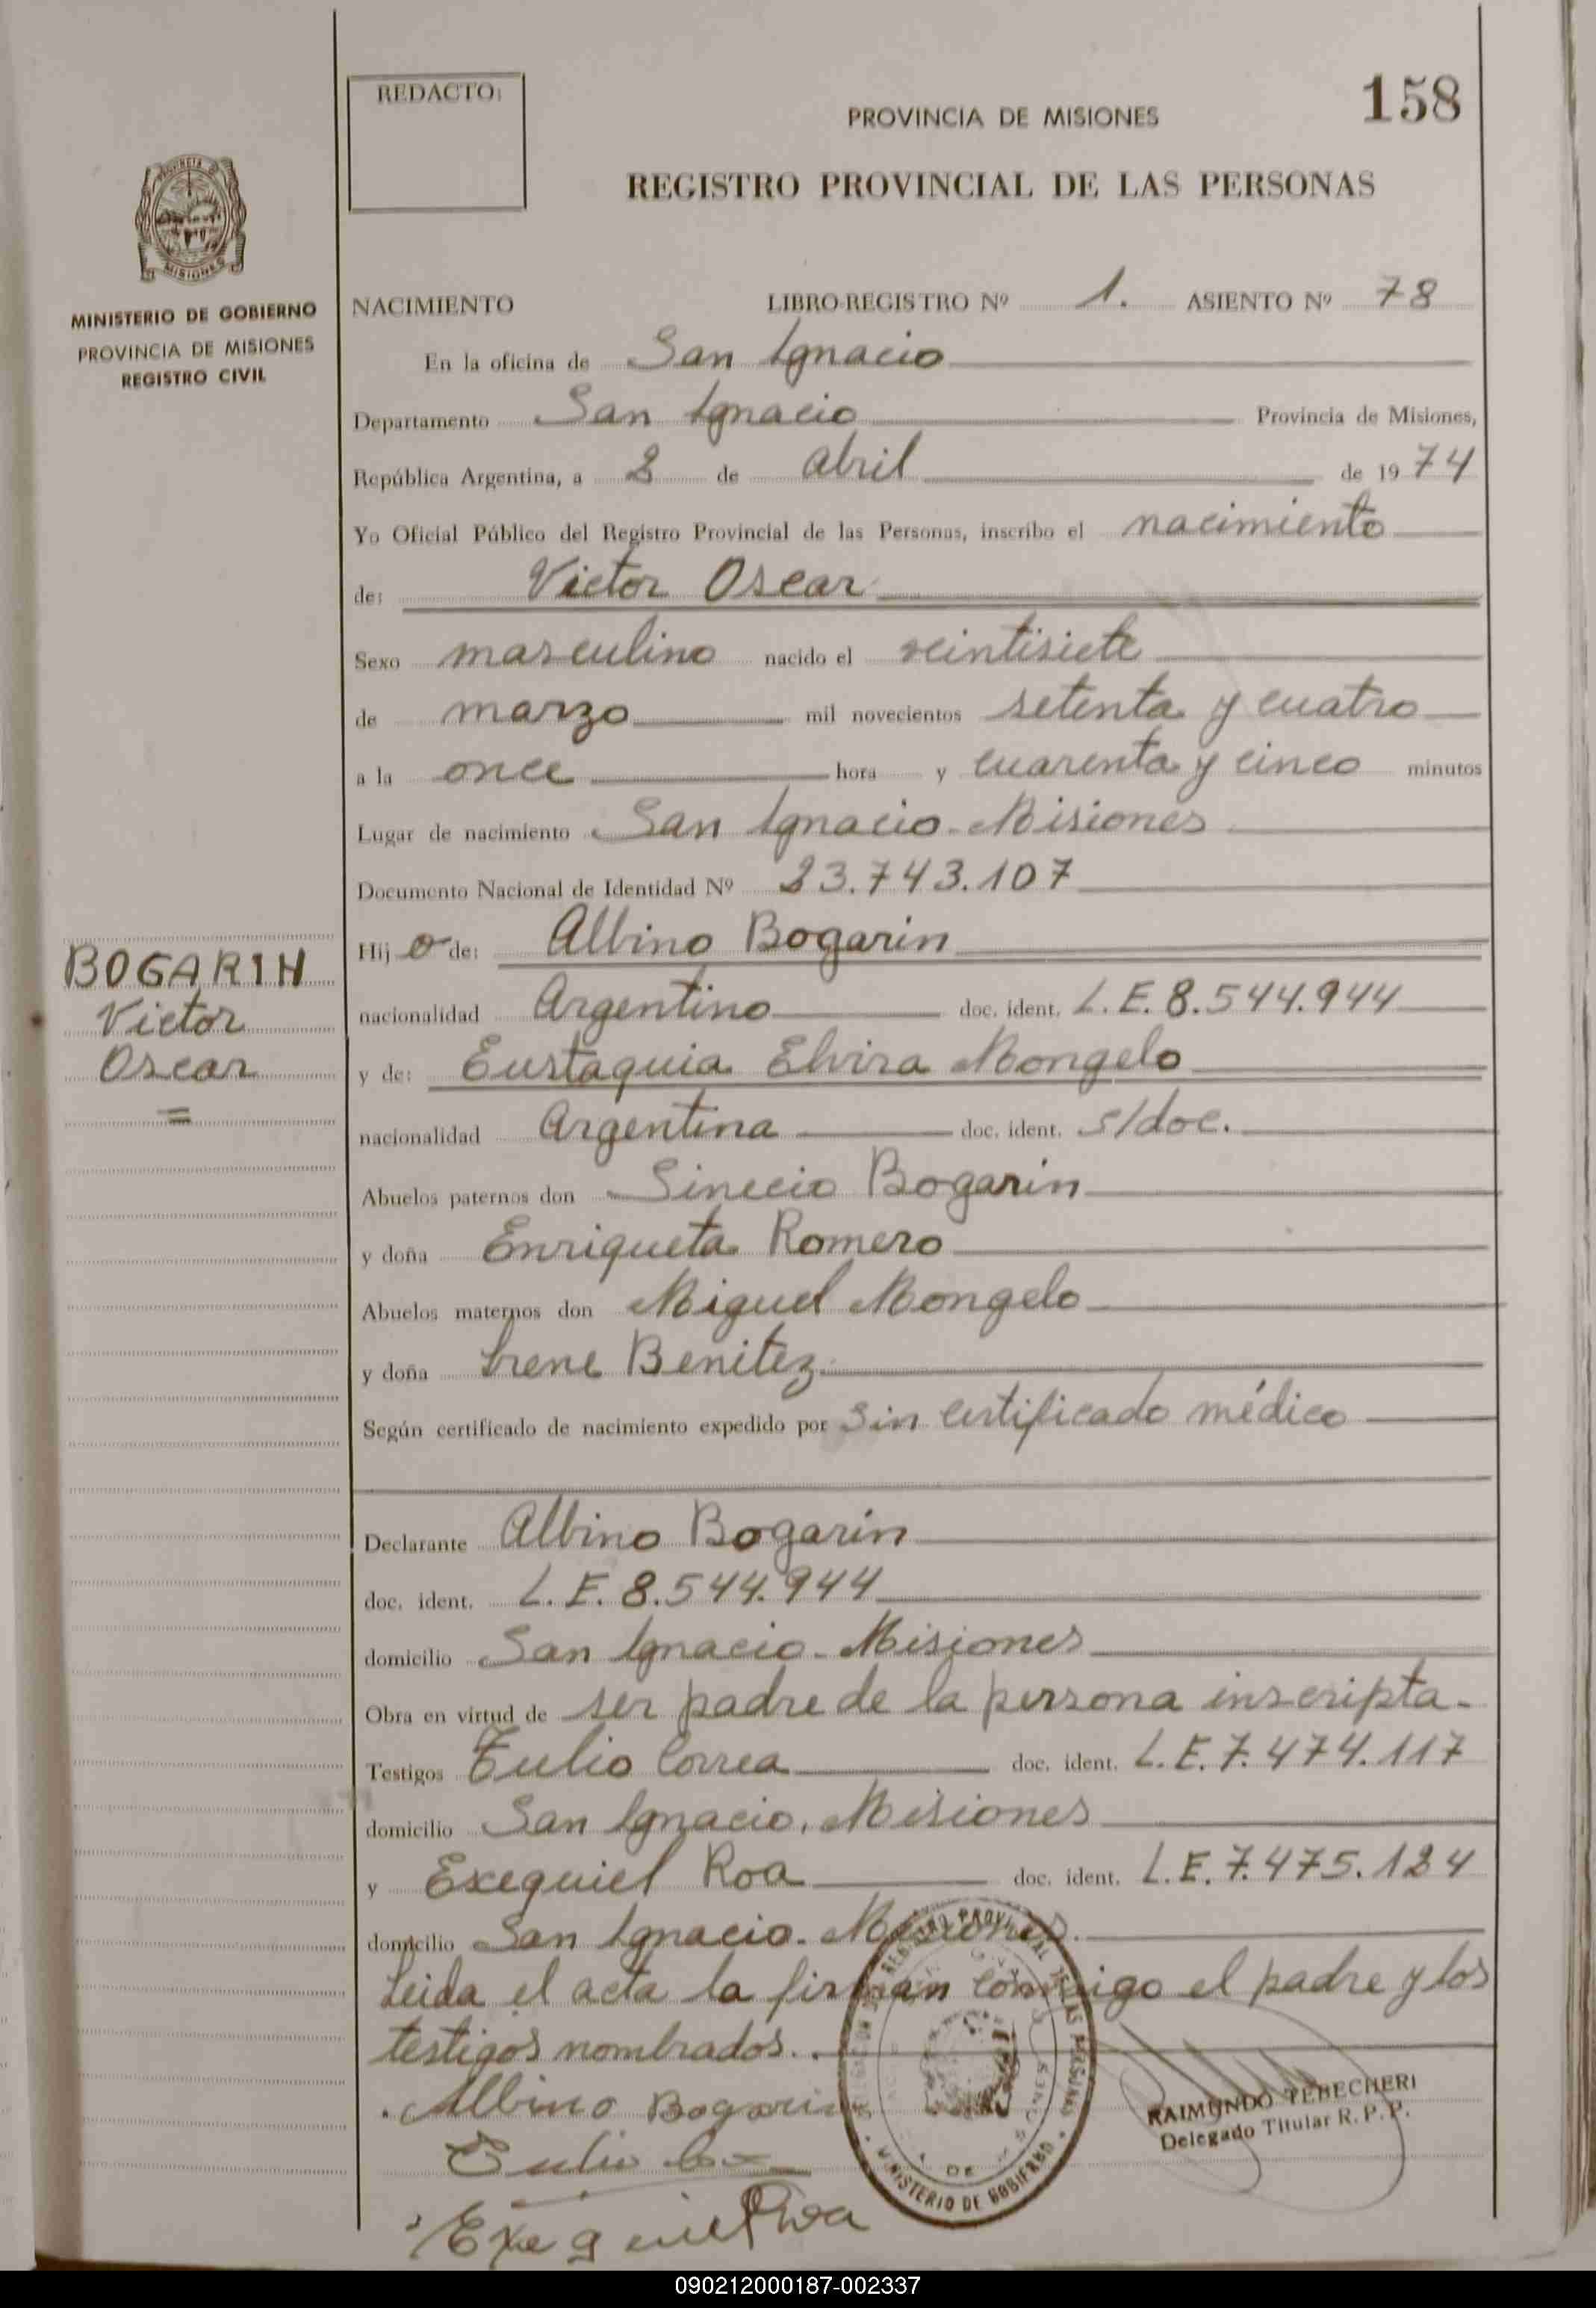 REDACTO:
158
PROVINCIA DE MISIONES
REGISTRO PROVINCIAL DE LAS PERSONAS
PROVINCIA DE
MISIONES
MINISTERIO DE GOBIERNO
PROVINCIA DE MISIONES
REGISTRO CIVIL
NACIMIENTO LIBRO-REGISTRO Nº 1. ASIENTO Nº 78
En la oficina de San Ignacio
Departamento San Ignacio Provincia de Misiones,
República Argentina, a 2 de abril de 1974
Yo Oficial Público del Registro Provincial de las Personas, inscribo el nacimiento
de: Victor Oscar
Sexo masculino nacido el veintisiete
de marzo mil novecientos setenta y cuatro
a la once hora y cuarenta y cinco minutos
Lugar de nacimiento San Ignacio - Misiones
Documento Nacional de Identidad Nº 23.743.107
BOGARIN
Victor
Oscar
=
Hijo de: Albino Bogarin
nacionalidad Argentino doc. ident. L.E. 8.544.944
y de: Eustaquia Elvira Mongelo
nacionalidad Argentina doc. ident. s/doc.
Abuelos paternos don Sinecio Bogarin
y doña Enriqueta Romero
Abuelos maternos don Miguel Mongelo
y doña Irene Benitez
Según certificado de nacimiento expedido por sin certificado médico
Declarante Albino Bogarin
doc. ident. L.E. 8.544.944
domicilio San Ignacio - Misiones
Obra en virtud de ser padre de la persona inscripta.
Testigos Tulio Correa doc. ident. L.E. 7.474.117
domicilio San Ignacio. Misiones
y Exequiel Roa doc. ident. L.E. 7.475.124
domicilio San Ignacio. Misiones.
Leida el acta la firman conmigo el padre y los
testigos nombrados.
Albino Bogarin
Tulio
Exequiel Roa
REGISTRO PROVINCIAL DE LAS PERSONAS
MINISTERIO DE GOBIERNO
RAIMUNDO TEBECHERI
Delegado Titular R. P. P.
090212000187-002337